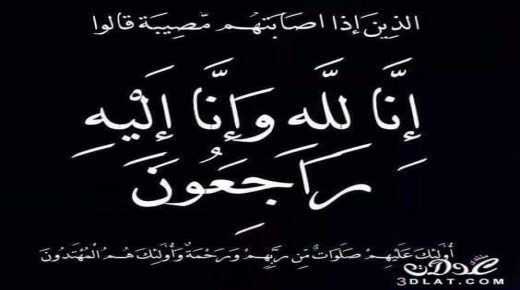 الذين إذا اصابتهم مصيبة قالوا
إنَّا لله وَإنَّا إلَيْهِ
رَاجِعُونَ
أُولَئِكَ عَلَيْهِمْ صَلَوَاتٌ مِّن رَّبِّهِمْ وَرَحْمَةٌ وَأُولَئِكَ هُمُ الْمُهْتَدُونَ
3DLAT.COM